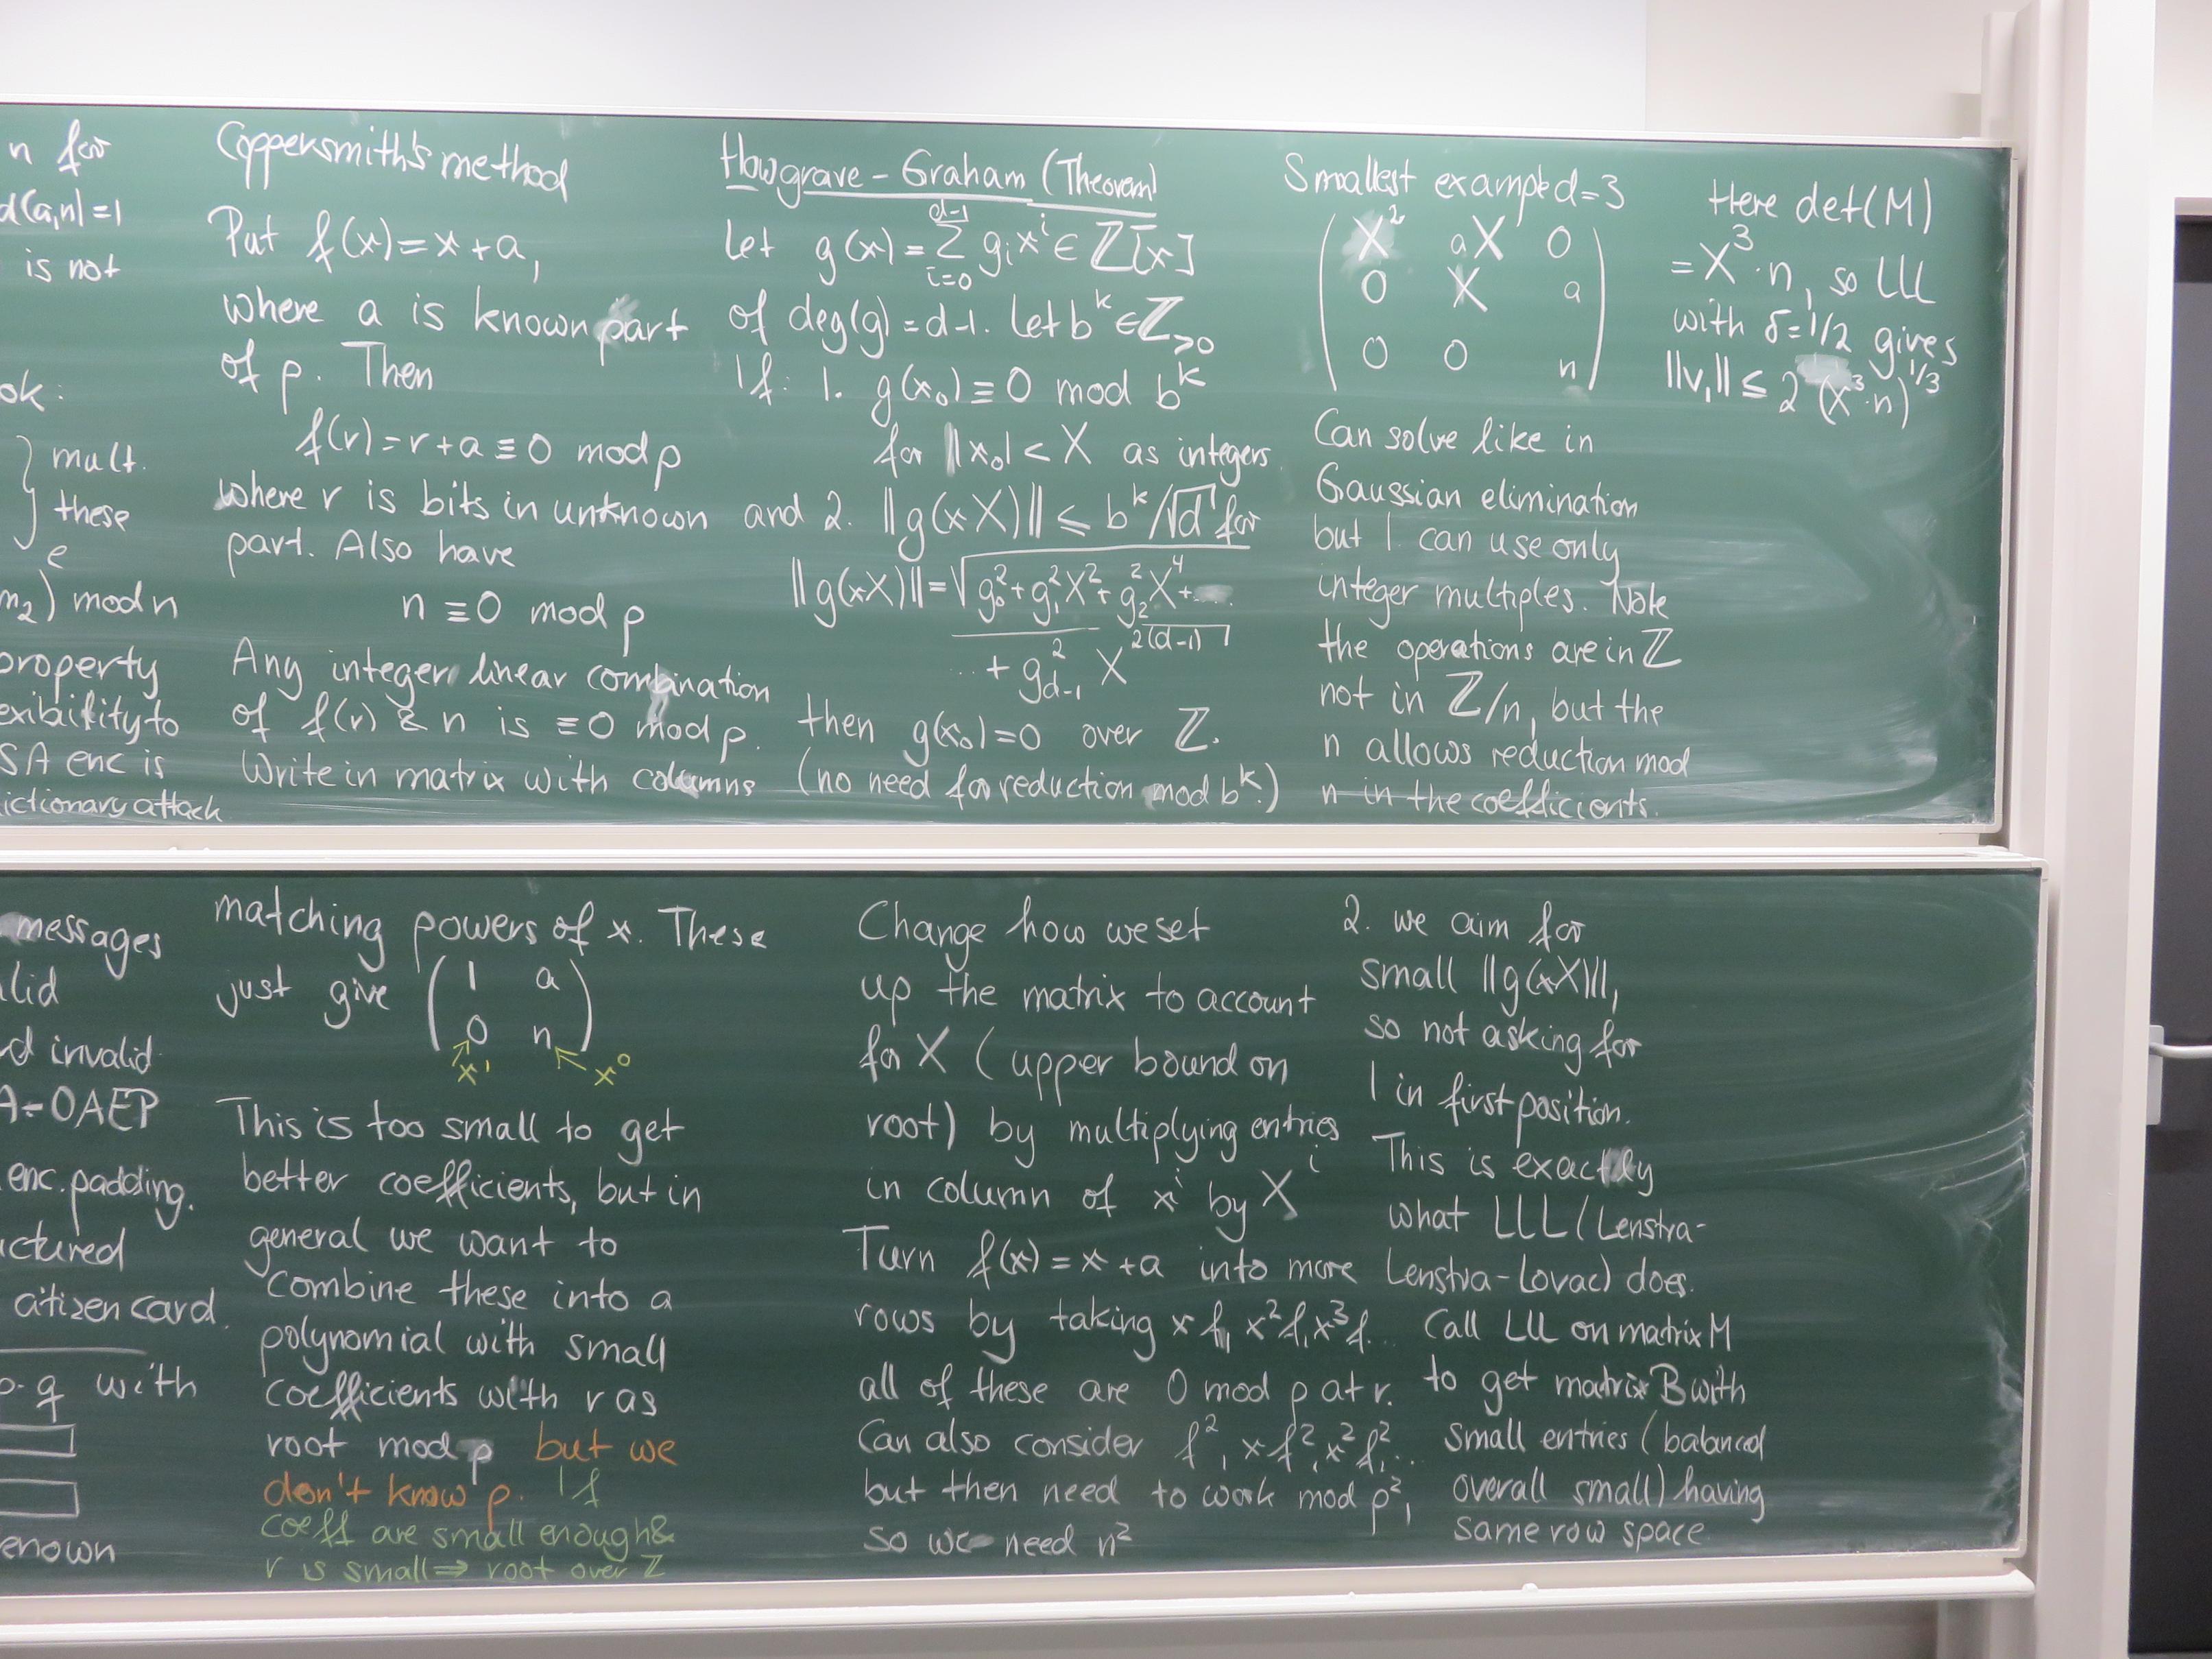 n for
d(a,n)=1
is not
ok:
} mult.
these
e
m₂) mod n
property
exibility to
SA enc is
ictionary attack
Coppersmith's method
Put f(x)=x+a,
where a is known part
of p. Then
f(r)=r+a≡0 mod p
where r is bits in unknown
part. Also have
n≡0 mod p
Any integer linear combination
of f(r) & n is ≡0 mod p.
Write in matrix with columns
Howgrave-Graham (Theorem)
Let g(x)=∑_{i=0}^{d-1} gᵢxⁱ∈ℤ[x]
of deg(g)=d-1. Let b^k∈ℤ_{>0}
If: 1. g(x₀)≡0 mod b^k
for |x₀|<X as integers
and 2. ||g(xX)||≤b^k/√d for
||g(xX)||=√g₀²+g₁²X²+g₂²X⁴+...
..+g_{d-1}²X^{2(d-1)}
then g(x₀)=0 over ℤ.
(no need for reduction mod b^k.)
Smallest example d=3
( X² aX 0
0 X a
0 0 n )
Can solve like in
Gaussian elimination
but I can use only
integer multiples. Note
the operations are in ℤ
not in ℤ/n, but the
n allows reduction mod
n in the coefficients.
Here det(M)
=X³·n, so LLL
with δ=1/2 gives
||v₁||≤2(X³·n)^{1/3}
messages
lid
d invalid
A-OAEP
enc. padding.
ctured
citizen card.
p·q with
enown
matching powers of x. These
just give ( 1 a
0 n )
x¹ x⁰
This is too small to get
better coefficients, but in
general we want to
combine these into a
polynomial with small
coefficients with r as
root mod p but we
don't know p. If
coeff are small enough &
r is small ⇒ root over ℤ
Change how we set
up the matrix to account
for X (upper bound on
root) by multiplying entries
in column of xⁱ by Xⁱ
Turn f(x)=x+a into more
rows by taking xf, x²f, x³f...
all of these are 0 mod p at r.
Can also consider f², xf², x²f²,...
but then need to work mod p²,
so we need n²
2. we aim for
small ||g(xX)||,
so not asking for
1 in first position.
This is exactly
what LLL (Lenstra-
Lenstra-Lovac) does.
Call LLL on matrix M
to get matrix B with
small entries (balanced
overall small) having
same row space